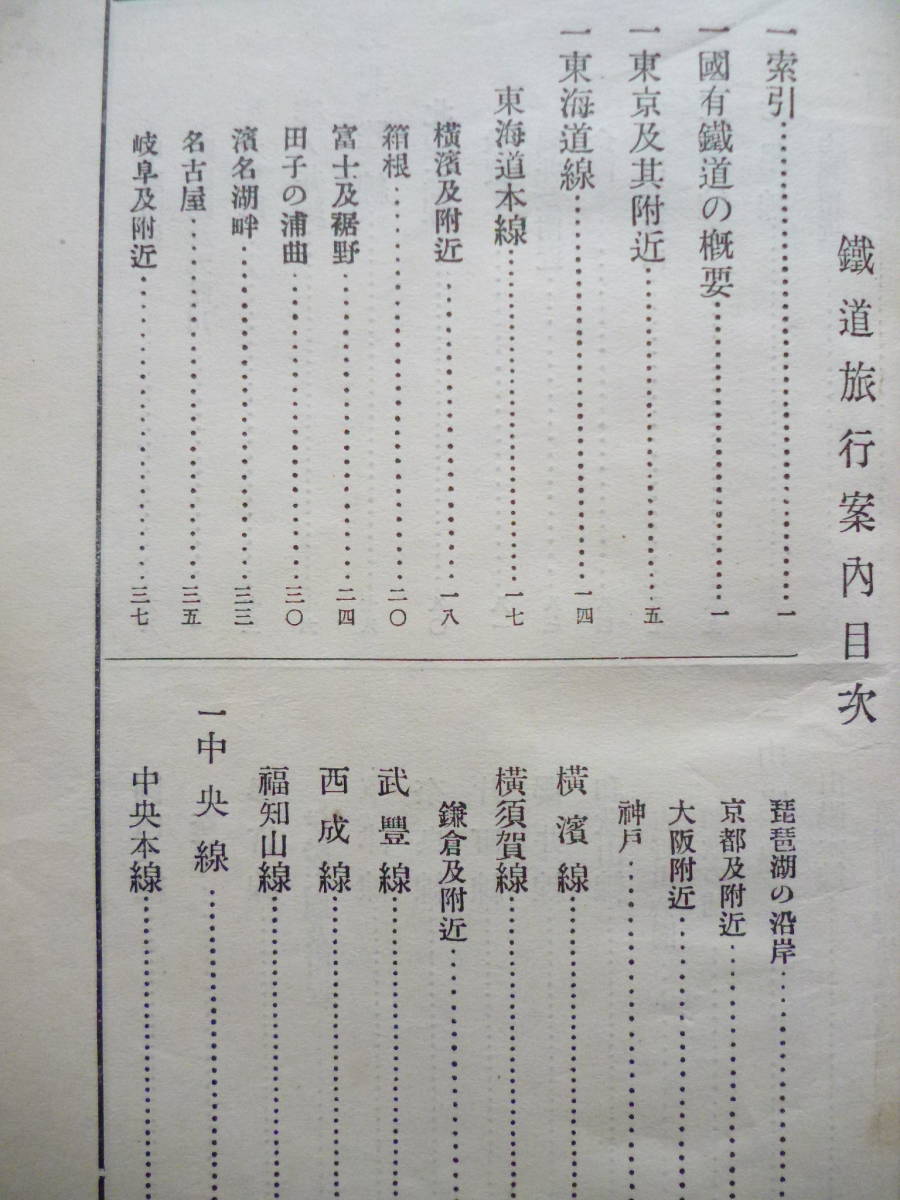 鐵道旅行案內目次
一索引……一
一國有鐵道の槪要……一
一東京及其附近……五
一東海道線……一四
東海道本線……一七
橫濱及附近……一八
箱根……二〇
富士及裾野……二四
田子の浦曲……三〇
濱名湖畔……三三
名古屋……三五
岐阜及附近……三七
琵琶湖の沿岸……
京都及附近……
大阪附近……
神戶……
橫濱線……
橫須賀線……
鎌倉及附近……
武豐線……
西成線……
福知山線……
一中央線……
中央本線……